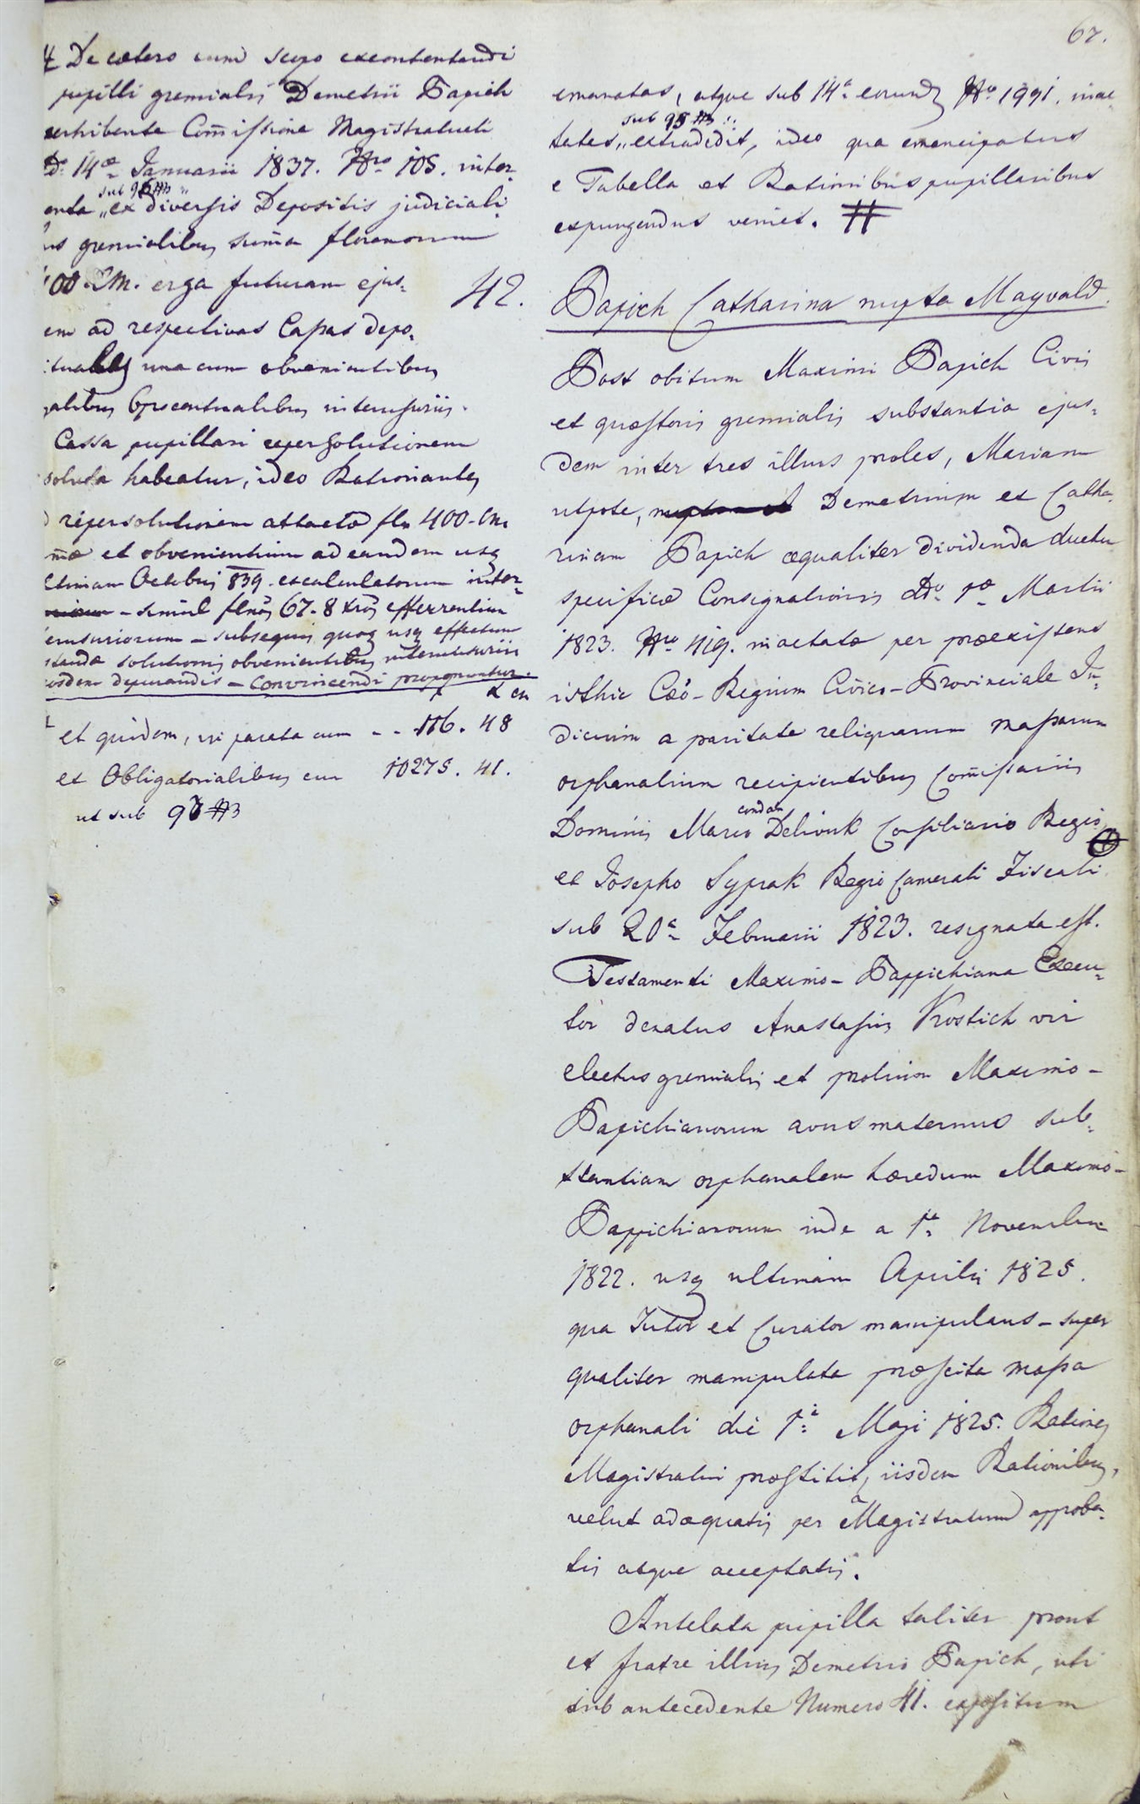 67.
# De cætero cum scopo excontentandi
pupilli gremialis Demetrii Papich
exhibente Com̄issione Magistratuali
Dto 14a Januarii 1837. Nro 105. inter-
sub 95 #3 "
enta „ ex diversis Depositis judiciali-
us gremialibus sum̄a florenorum
400 CM. erga futuram ejus-
em ad respectivas Cassas depo-
una cum obvenientibus
galibus 6 percentualibus interusuriis.
Cassa pupillari reper solutionem
soluta habeatur, ideo Rationantes
repersolutionem attactæ fln 400 - CM.
et obvenientium ad eandem usq
ltimam Octobris 839. excalculatorum inter-
- simul flnos 67. 8 xros efferrentium
erusuriorum - subsequis quoq usq effectum
standæ solutionis obvenientibus interusuriis
isdem depurandis - convincendi proponuntur.
et quidem, in parata cum - - 116. 48
et Obligatorialibus cum 10275. 41.
ut sub 95 #3
emanatas, atque sub 14a eorund Nro 1991. inac-
sub 95 #3 :.
tatas „ extradidit, ideo qua emancipatus
e Tabella et Rationibus pupillaribus
expungendus veniet. #
42. Papich Catharina nupta Mayvald.
Post obitum Maximi Papich Civis
et quæstoris gremialis substantia ejus-
dem inter tres illius proles, Mariam
utpote, Demetrium et Catha-
rinam Papich æqualiter dividenda ductu
specificæ Consignationis Dto 1a Martii
1823. Nro 419. inactatæ per præexistens
isthic Cæo - Regium Civico - Provinciale Ju-
dicium a paritate reliquarum massarum
orphanalium recipientibus Com̄issariis
condam
Dominis Marco Delivuk Consiliario Regio
et Josepho Syprak Regio Camerali Fiscali
sub 20a Februarii 1823. resignata est.
Testamenti Maximo - Pappichiana Execu-
tor denatus Anastasius Krostich vir
electus gremialis et prolium Maximo -
Papichianorum avus maternus sub-
stantiam orphanalem hæredum Maximo -
Pappichianorum inde a 1a Novembris
1822. usq ultimam Aprilis 1825.
qua Tutor et Curator manipulans - super
qualiter manipulata præscita massa
orphanali die 1a Maji 1825. Rationes
Magistratui præstitit, iisdem Rationibus,
velut adæquatis per Magistratum approba-
tis atque acceptatis.
Antelata pupilla taliter prout
et fratre illius Demetrio Papich, uti
sub antecedente Numero 41. expositum